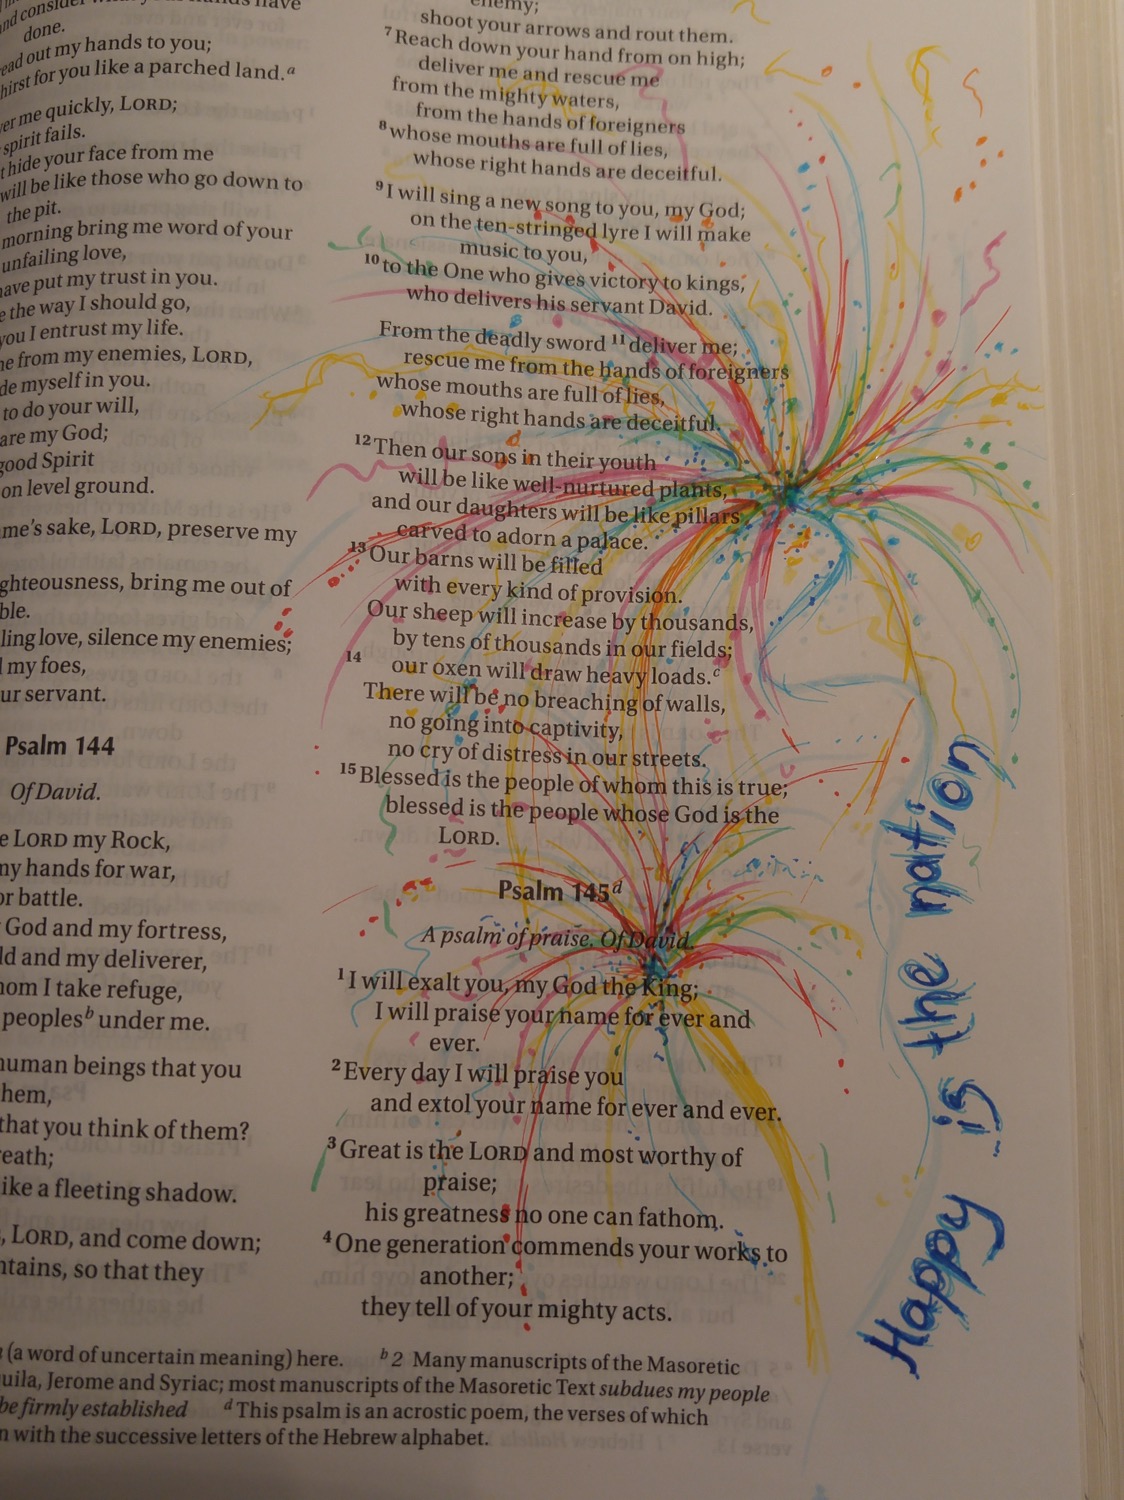 and consider what your hands have
done.
read out my hands to you;
thirst for you like a parched land.a
me quickly, LORD;
spirit fails.
hide your face from me
will be like those who go down to
the pit.
morning bring me word of your
unfailing love,
have put my trust in you.
the way I should go,
you I entrust my life.
from my enemies, LORD,
myself in you.
to do your will,
are my God;
good Spirit
on level ground.
me's sake, LORD, preserve my
ghteousness, bring me out of
ble.
ling love, silence my enemies;
my foes,
ur servant.
Psalm 144
Of David.
LORD my Rock,
my hands for war,
or battle.
God and my fortress,
ld and my deliverer,
hom I take refuge,
peoplesb under me.
human beings that you
hem,
that you think of them?
eath;
ike a fleeting shadow.
LORD, and come down;
ntains, so that they
enemy;
shoot your arrows and rout them.
7 Reach down your hand from on high;
deliver me and rescue me
from the mighty waters,
from the hands of foreigners
8 whose mouths are full of lies,
whose right hands are deceitful.
9 I will sing a new song to you, my God;
on the ten-stringed lyre I will make
music to you,
10 to the One who gives victory to kings,
who delivers his servant David.
From the deadly sword 11 deliver me;
rescue me from the hands of foreigners
whose mouths are full of lies,
whose right hands are deceitful.
12 Then our sons in their youth
will be like well-nurtured plants,
and our daughters will be like pillars
carved to adorn a palace.
13 Our barns will be filled
with every kind of provision.
Our sheep will increase by thousands,
by tens of thousands in our fields;
14 our oxen will draw heavy loads.c
There will be no breaching of walls,
no going into captivity,
no cry of distress in our streets.
15 Blessed is the people of whom this is true;
blessed is the people whose God is the
LORD.
Psalm 145d
A psalm of praise. Of David.
1 I will exalt you, my God the King;
I will praise your name for ever and
ever.
2 Every day I will praise you
and extol your name for ever and ever.
3 Great is the LORD and most worthy of
praise;
his greatness no one can fathom.
4 One generation commends your works to
another;
they tell of your mighty acts.
(a word of uncertain meaning) here. b 2 Many manuscripts of the Masoretic
uila, Jerome and Syriac; most manuscripts of the Masoretic Text subdues my people
be firmly established d This psalm is an acrostic poem, the verses of which
n with the successive letters of the Hebrew alphabet.
Happy is the nation